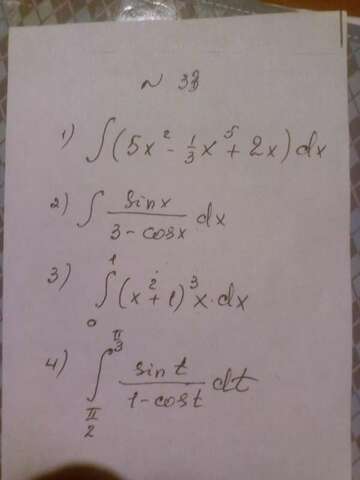 ~ 38
1) ∫(5x² - 1/3 x⁵ + 2x)dx
2) ∫ sinx / (3 - cosx) dx
3) ∫₀¹ (x² + 1)³ x·dx
4) ∫_{π/2}^{π/3} sin t / (1 - cos t) dt